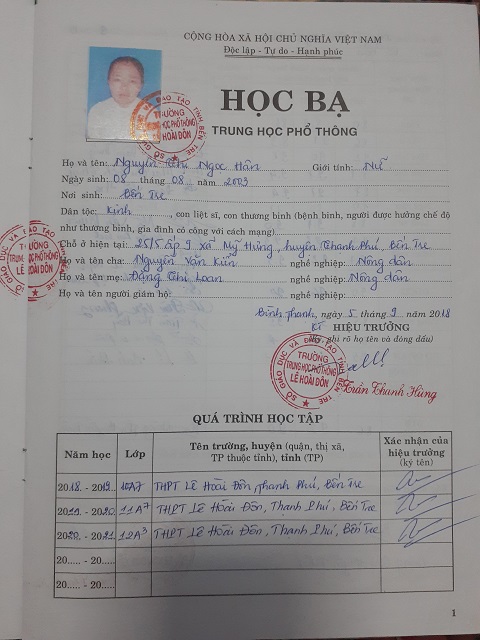 CỘNG HÒA XÃ HỘI CHỦ NGHĨA VIỆT NAM
Độc lập - Tự do - Hạnh phúc
HỌC BẠ
TRUNG HỌC PHỔ THÔNG
SỞ GIÁO DỤC VÀ ĐÀO TẠO TỈNH BẾN TRE
TRƯỜNG
TRUNG HỌC PHỔ THÔNG
LÊ HOÀI ĐÔN
Họ và tên: Nguyễn Thị Ngọc Hân Giới tính: Nữ
Ngày sinh: 08 tháng 08 năm 2003
Nơi sinh: Bến Tre
Dân tộc: Kinh, con liệt sĩ, con thương binh (bệnh binh, người được hưởng chế độ
như thương binh, gia đình có công với cách mạng)
Chỗ ở hiện tại: 25/5 ấp 9 Xã Mỹ Hưng, huyện Thạnh Phú, Bến Tre
Họ và tên cha: Nguyễn Văn Kiển nghề nghiệp: Nông dân
Họ và tên mẹ: Đặng Thị Loan nghề nghiệp: Nông dân
Họ và tên người giám hộ: nghề nghiệp:
SỞ GIÁO DỤC VÀ ĐÀO TẠO TỈNH BẾN TRE
TRƯỜNG
TRUNG HỌC PHỔ THÔNG
LÊ HOÀI ĐÔN
ngày 5 tháng 9 năm 2018
HIỆU TRƯỞNG
(Ký, ghi rõ họ tên và đóng dấu)
SỞ GIÁO DỤC VÀ ĐÀO TẠO TỈNH BẾN TRE
TRƯỜNG
TRUNG HỌC PHỔ THÔNG
LÊ HOÀI ĐÔN
Trần Thanh Hùng
QUÁ TRÌNH HỌC TẬP
Năm học Lớp Tên trường, huyện (quận, thị xã, TP thuộc tỉnh), tỉnh (TP) Xác nhận của hiệu trưởng (ký tên)
2018. - 2019. 10A7 THPT Lê Hoài Đôn, Thạnh Phú, Bến Tre
2019. - 2020. 11A7 THPT Lê Hoài Đôn, Thạnh Phú, Bến Tre
2020. - 2021. 12A3 THPT Lê Hoài Đôn, Thạnh Phú, Bến Tre
20..... - 20.....
20..... - 20.....
1